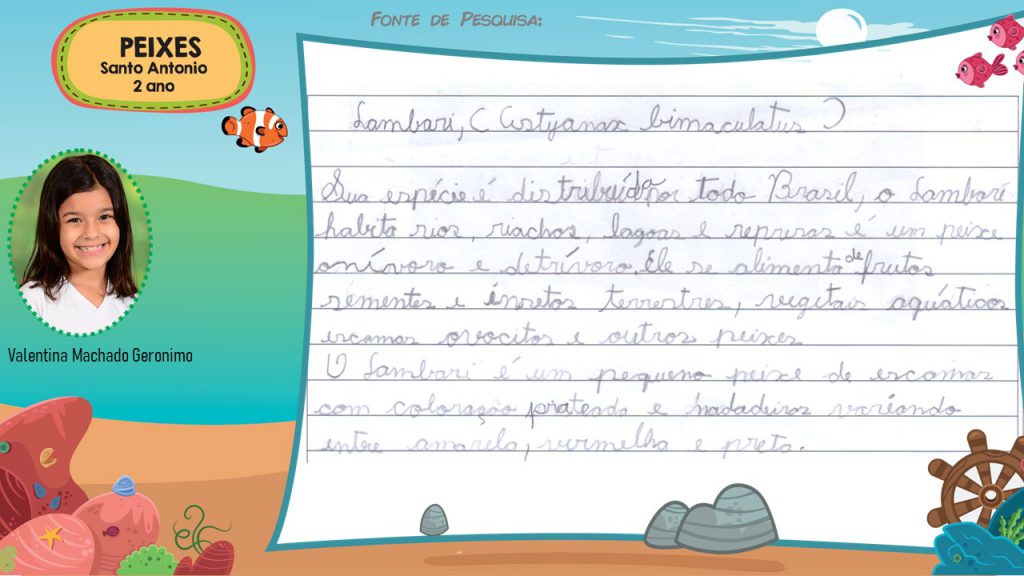 FONTE DE PESQUISA:
PEIXES
Santo Antonio
2 ano
Valentina Machado Geronimo
Lambari, ( Astyanax bimaculatus )
Sua espécie é distribuída por todo Brasil, o Lambari
habita rios, riachos, lagoas e represas é um peixe
onívoro e detrívoro. Ele se alimenta de frutos
sementes e insetos terrestres, vegetais aquáticos
escamas ovocitos e outros peixes
O Lambari é um pequeno peixe de escamas
com coloração prateada e nadadeiras variando
entre amarela, vermelha e preta.